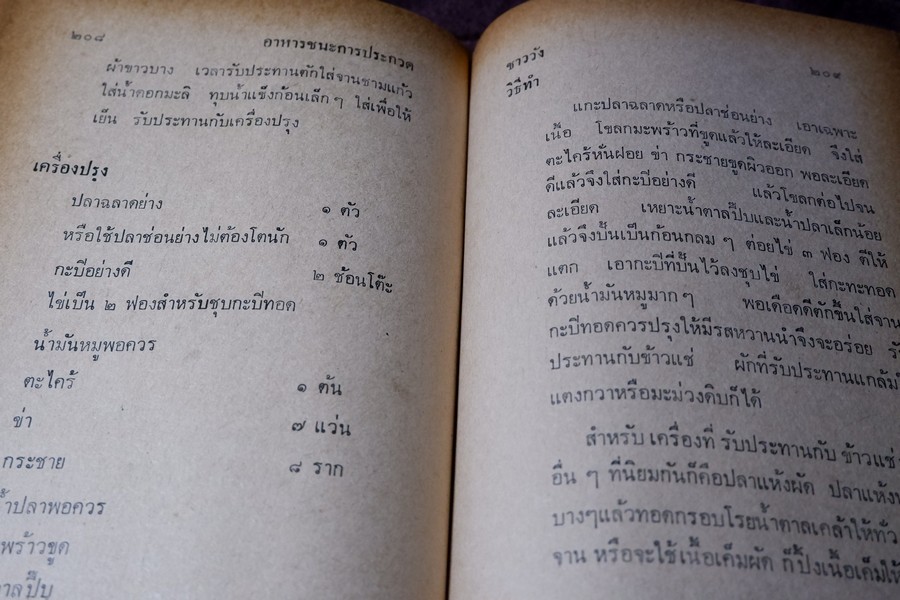 ๒๐๘
อาหารชนะการประกวด
ผ้าขาวบาง เวลารับประทานตักใส่จานชามแก้ว
ใส่น้ำดอกมะลิ ทุบน้ำแข็งก้อนเล็ก ๆ ใส่เพื่อให้
เย็น รับประทานกับเครื่องปรุง
เครื่องปรุง
ปลาฉลาดย่าง ๑ ตัว
หรือใช้ปลาช่อนย่างไม่ต้องโตนัก ๑ ตัว
กะปิอย่างดี ๒ ช้อนโต๊ะ
ไข่เป็น ๒ ฟองสำหรับชุบกะปิทอด
น้ำมันหมูพอควร
ตะไคร้ ๑ ต้น
ข่า ๗ แว่น
กระชาย ๘ ราก
น้ำปลาพอควร
พร้าวขูด
าลปี๊บ
ชาววัง
๒๐๙
วิธีทำ
แกะปลาฉลาดหรือปลาช่อนย่าง เอาเฉพาะ
เนื้อ โขลกมะพร้าวที่ขูดแล้วให้ละเอียด จึงใส่
ตะไคร้หั่นฝอย ข่า กระชายขูดผิวออก พอละเอียด
ดีแล้วจึงใส่กะปิอย่างดี แล้วโขลกต่อไปจน
ละเอียด เหยาะน้ำตาลปี๊บและน้ำปลาเล็กน้อย
แล้วจึงปั้นเป็นก้อนกลม ๆ ต่อยไข่ ๓ ฟอง ตีให้
แตก เอากะปิที่ปั้นไว้ลงชุบไข่ ใส่กะทะทอด
ด้วยน้ำมันหมูมาก ๆ พอเดือดดีตักขึ้นใส่จาน
กะปิทอดควรปรุงให้มีรสหวานนำจึงจะอร่อย รั
ประทานกับข้าวแช่ ผักที่รับประทานแกล้ม
แตงกวาหรือมะม่วงดิบก็ได้
สำหรับ เครื่องที่ รับประทานกับ ข้าวแช่
อื่น ๆ ที่นิยมกันก็คือปลาแห้งผัด ปลาแห้ง
บางๆแล้วทอดกรอบโรยน้ำตาลเคล้าให้ทั่ว
จาน หรือจะใช้เนื้อเค็มผัด ก็ปิ้งเนื้อเค็มให้